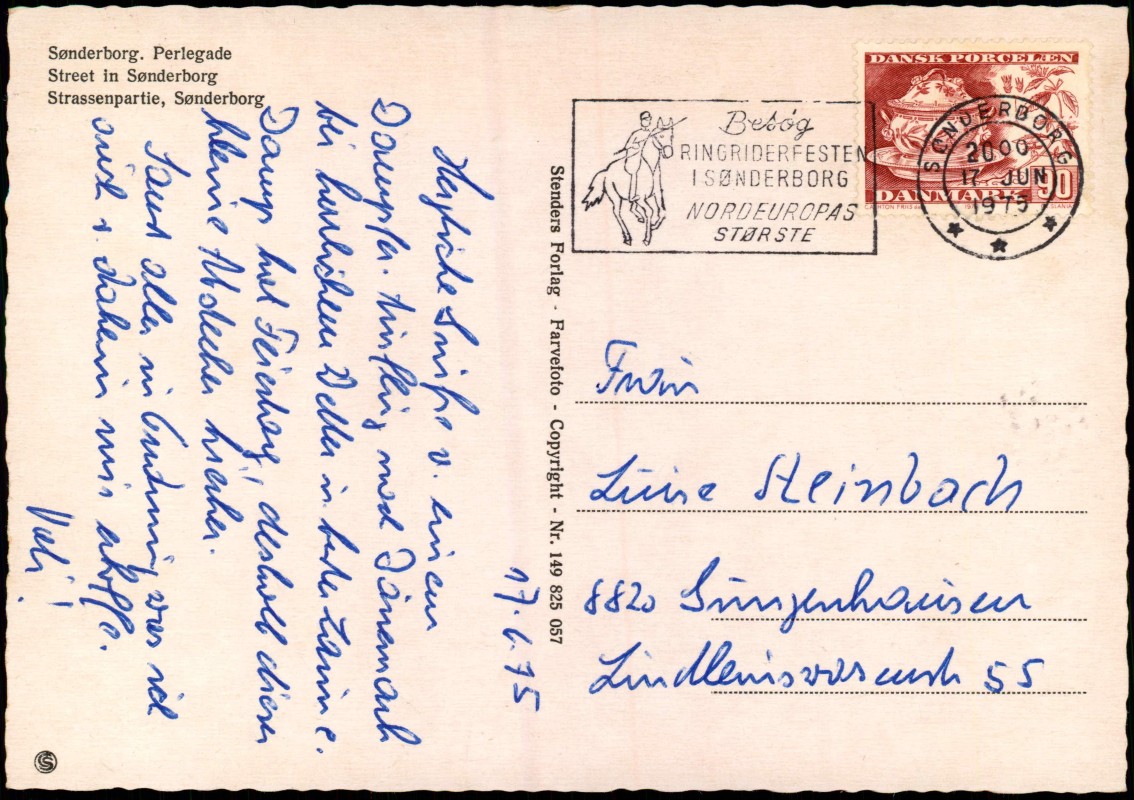 Sønderborg. Perlegade
Street in Sønderborg
Strassenpartie, Sønderborg
17.6.75
Herzliche Grüße v. einem
Dampfer. Ausflug nach Dänemark
bei herrlichem Wetter in bester Laune.
hat Feiertag, deshalb dieser
kleine Abstecher hierher.
Sonst alles in Ordnung, was ich
auch v. daheim mir erhoffe.
Vati!
Stenders Forlag - Farvefoto - Copyright - Nr. 149 825 057
Besøg
RINGRIDERFESTEN
I SØNDERBORG
NORDEUROPAS
STØRSTE
DANSK PORCELÆN
90
DANMARK
SØNDERBORG
2000
17 JUN
1975
Frau
Luise Steinbach
8820 Gunzenhausen
Lindleinswasenstr. 55